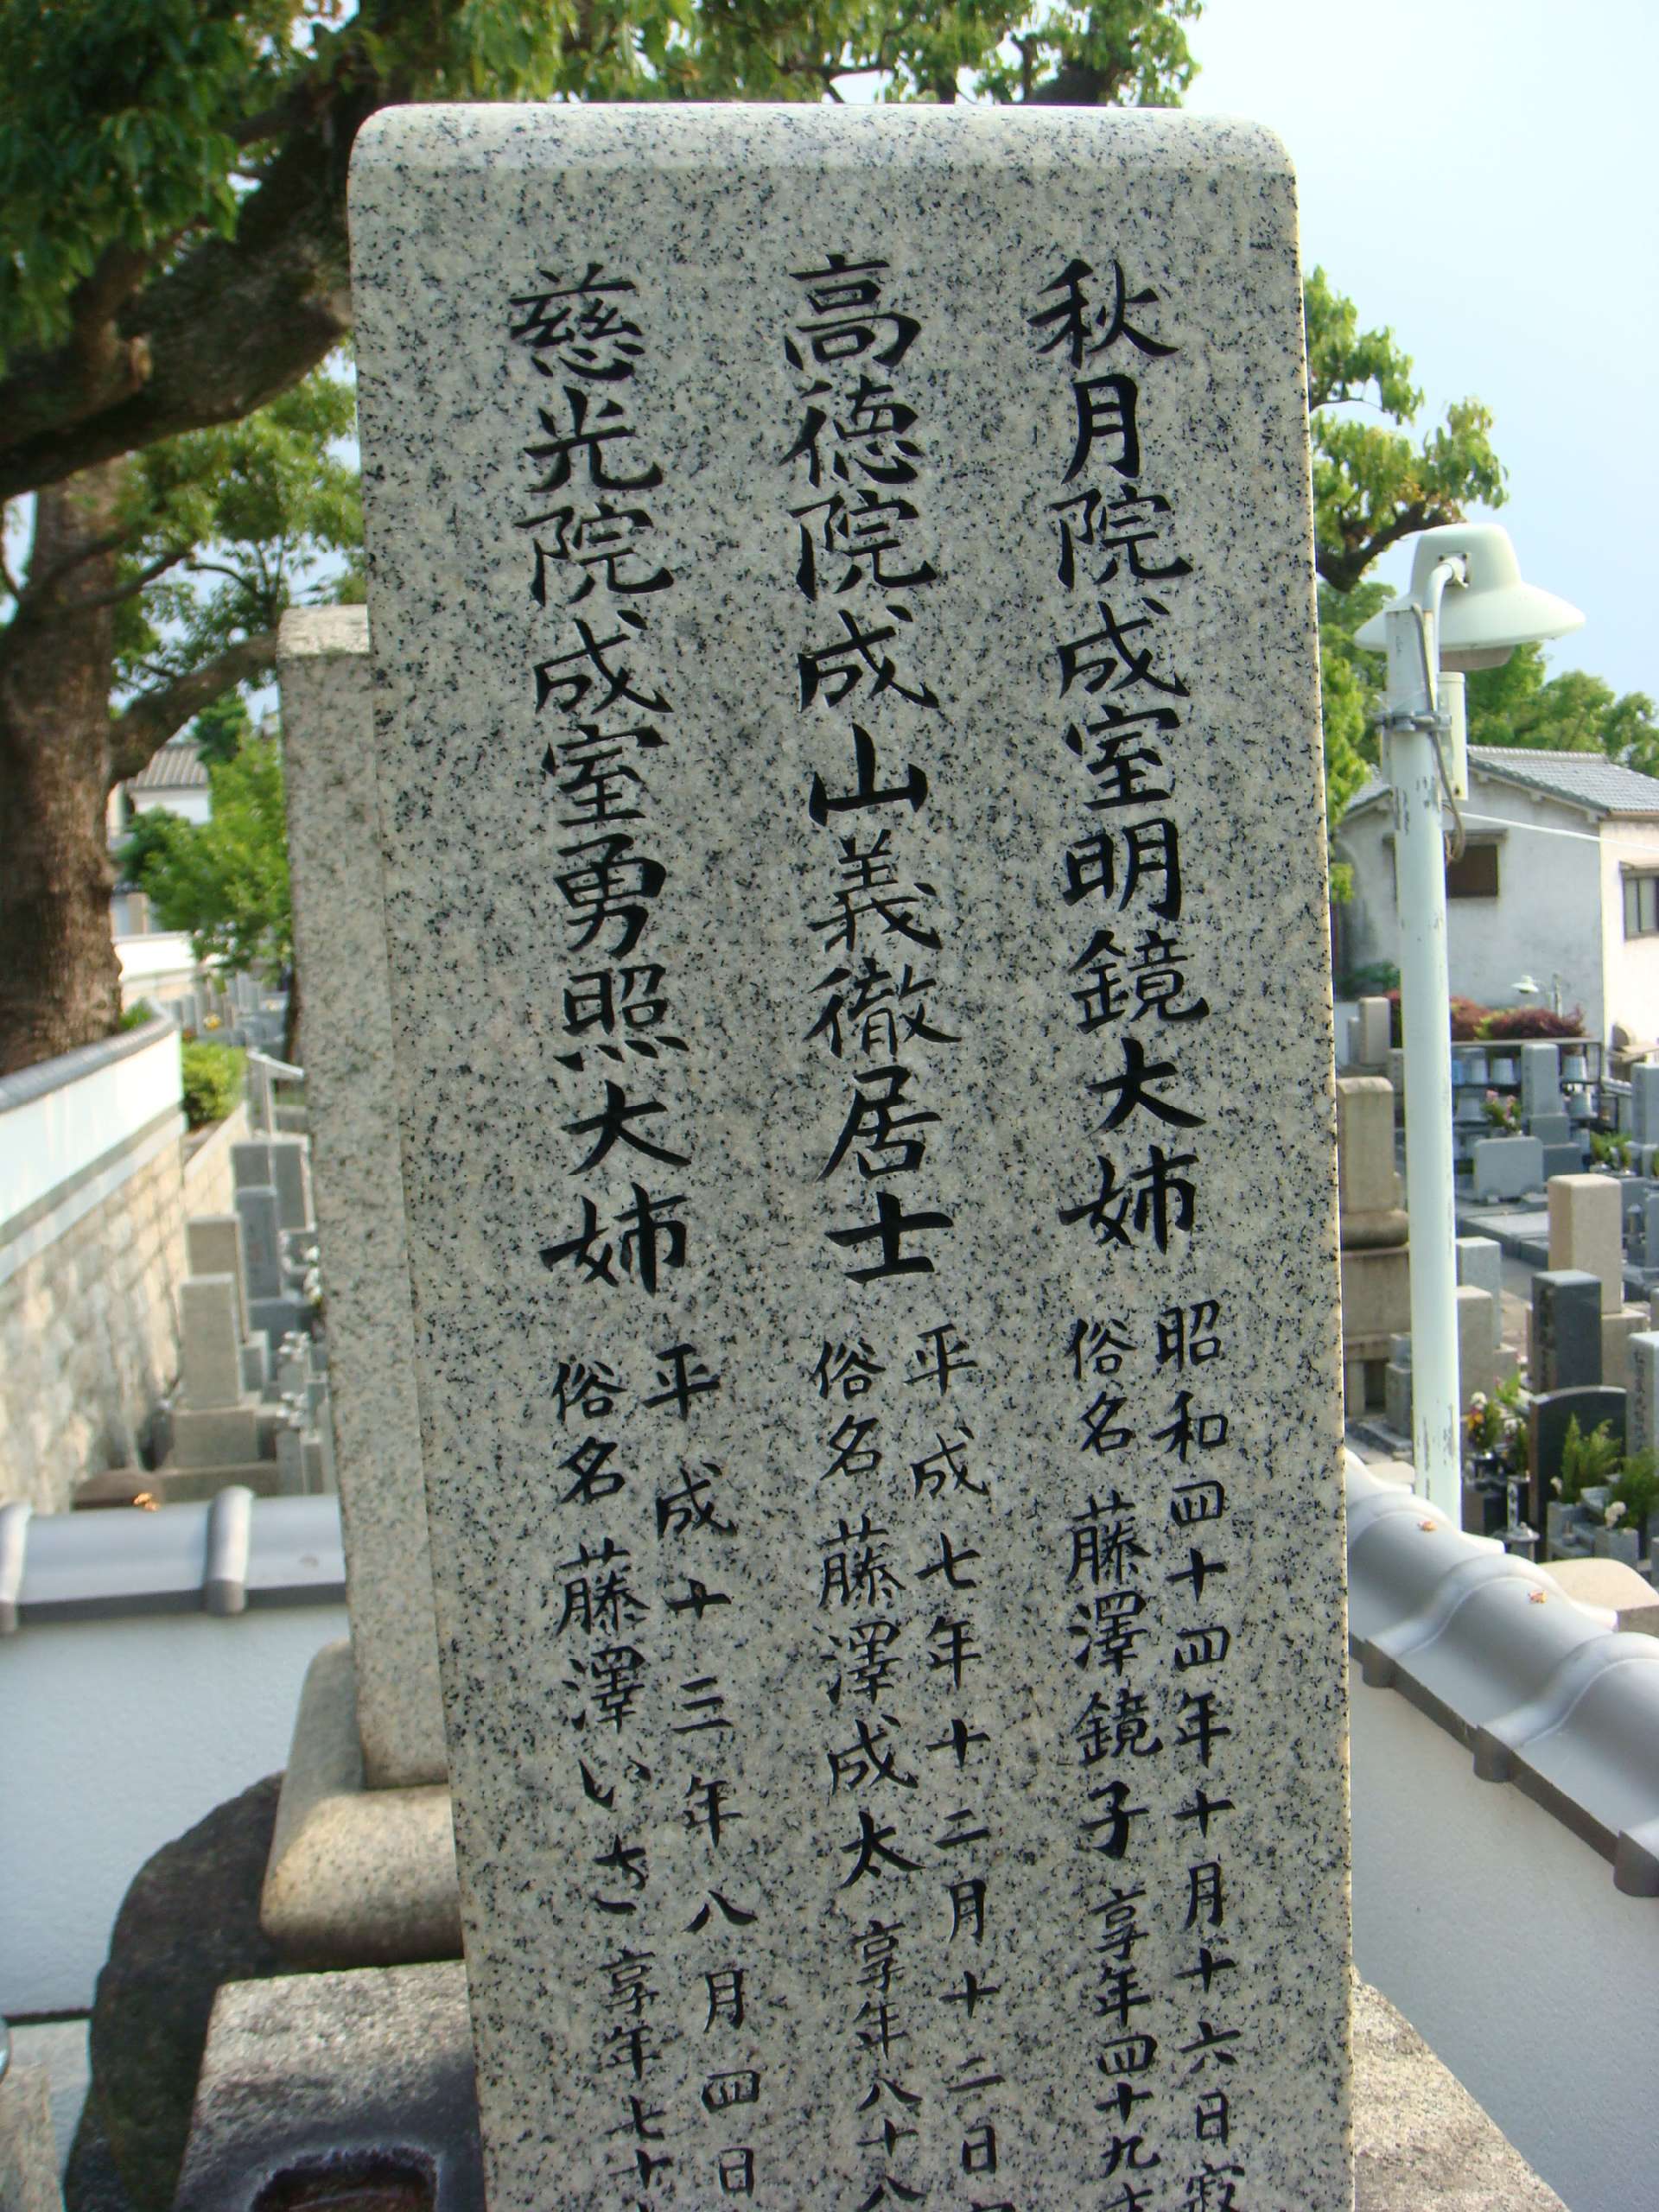 秋月院成室明鏡大姉
昭和四十四年十月十六日寂
俗名藤澤鏡子 享年四十九才
高徳院成山義徹居士
平成七年十二月十二日
俗名藤澤成太 享年八十八
慈光院成室勇照大姉
平成十三年八月四日
俗名藤澤いさ 享年七十